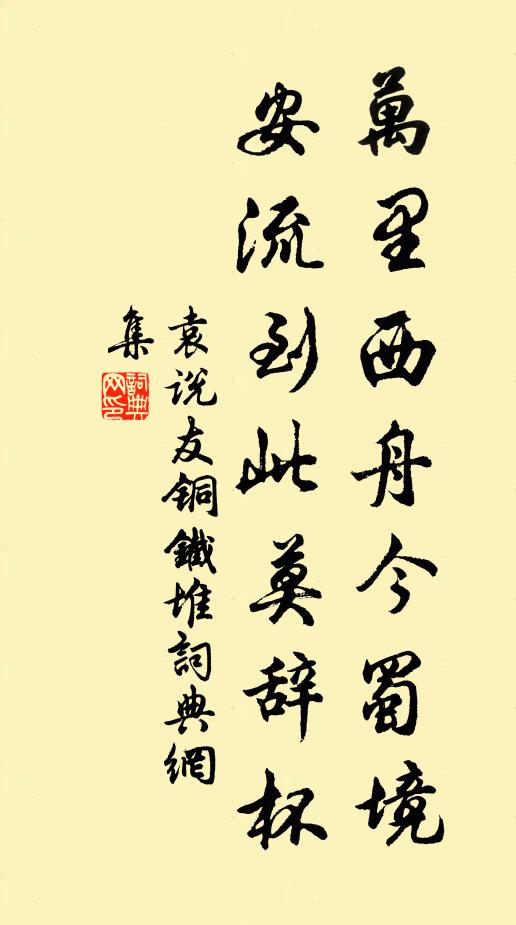 萬里西舟今蜀境
安流到此莫辞杯
袁说友铜鐵堆詞典網
集
詞典网印